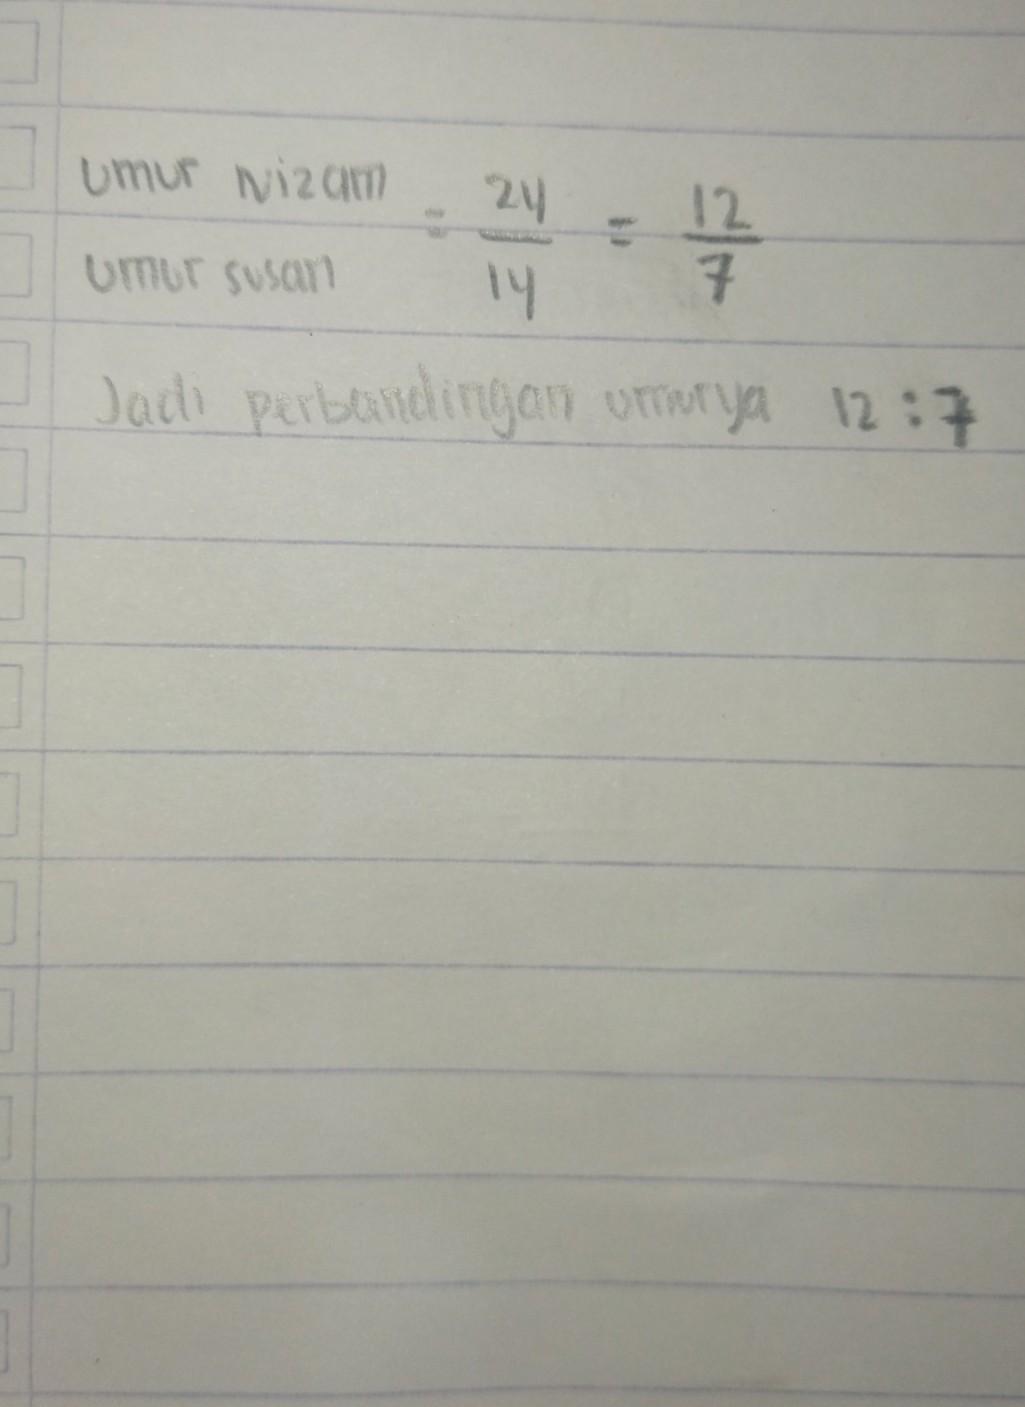 Umur Nizam = 24 = 12
Umur susan 14 7
Jadi perbandingan umurya 12 : 7